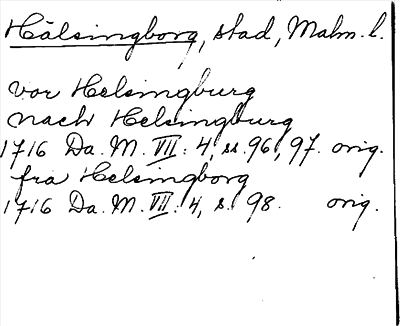 Hälsingborg, stad, Malm. l.
vor Helsingburg
nach Helsingburg
1716 Da. M. VII: 4, ss. 96, 97. orig.
fra Helsingborg
1716 Da. M. VII: 4, s. 98. orig.